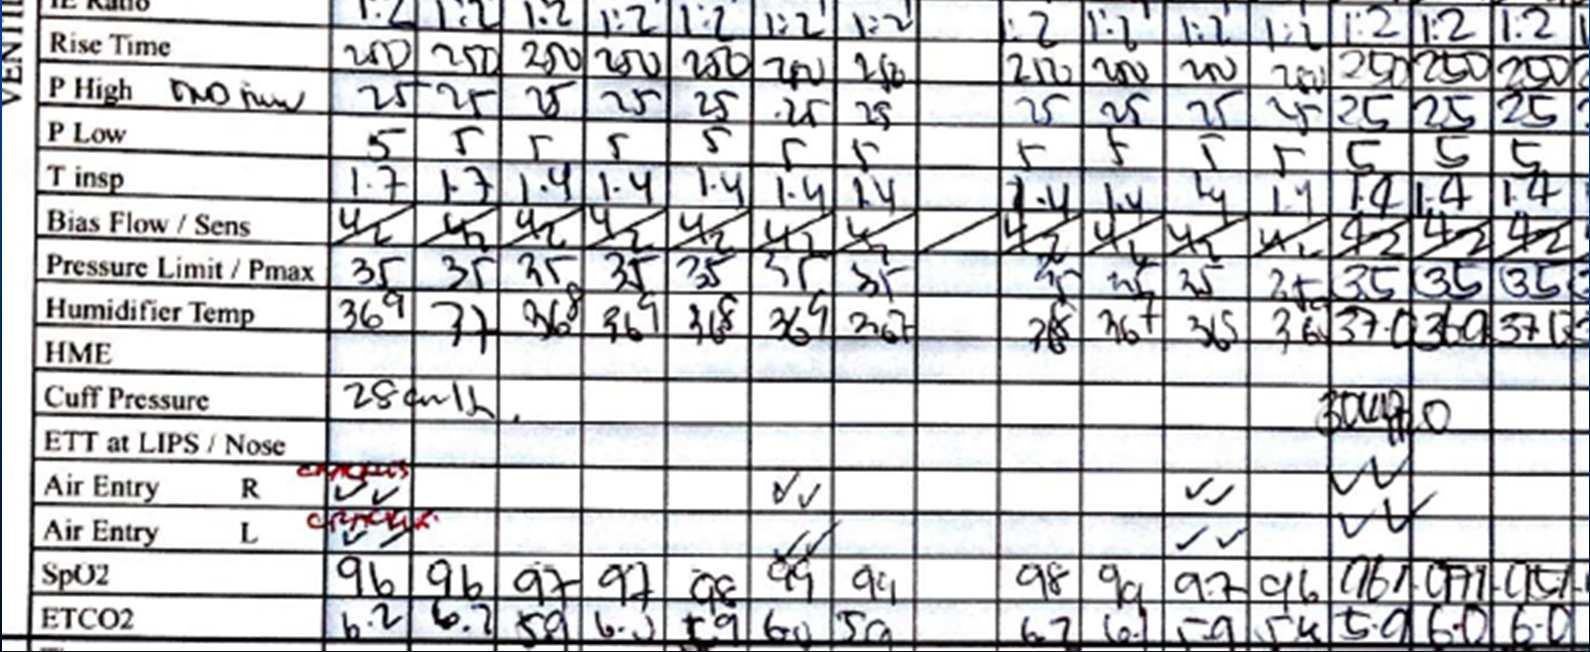 IE Ratio 1:2 1:2 1:2 1:2 1:2 1:2 1:2 1:2 1:2 1:2 1:2 1:2 1:2 1:2
Rise Time 250 250 250 250 250 250 250 250 200 200 250 250 250 250
P High 25 25 25 25 25 25 25 25 25 25 25 25 25 25
P Low 5 5 5 5 5 5 5 5 5 5 5 5 5 5
T insp 1.7 1.7 1.4 1.4 1.4 1.4 1.4 1.4 1.4 1.4 1.4 1.4 1.4 1.4
Bias Flow / Sens 4/2 4/2 4/2 4/2 4/2 4/2 4/2 4/2 4/2 4/2 4/2 4/2 4/2 4/2
Pressure Limit / Pmax 35 35 35 35 35 35 35 35 35 35 35 35 35 35
Humidifier Temp 369 37 368 369 368 369 367 368 367 365 37.0 369
HME
Cuff Pressure 28
ETT at LIPS / Nose
Air Entry R ✓✓ ✓✓ ✓✓ ✓✓
Air Entry L ✓✓ ✓✓ ✓✓ ✓✓
SpO2 96 96 97 97 98 99 99 98 99 97 96
ETCO2 6.2 6.2 5.9 5.9 6.0 5.9 6.2 6.1 5.9 5.9 6.0 6.0